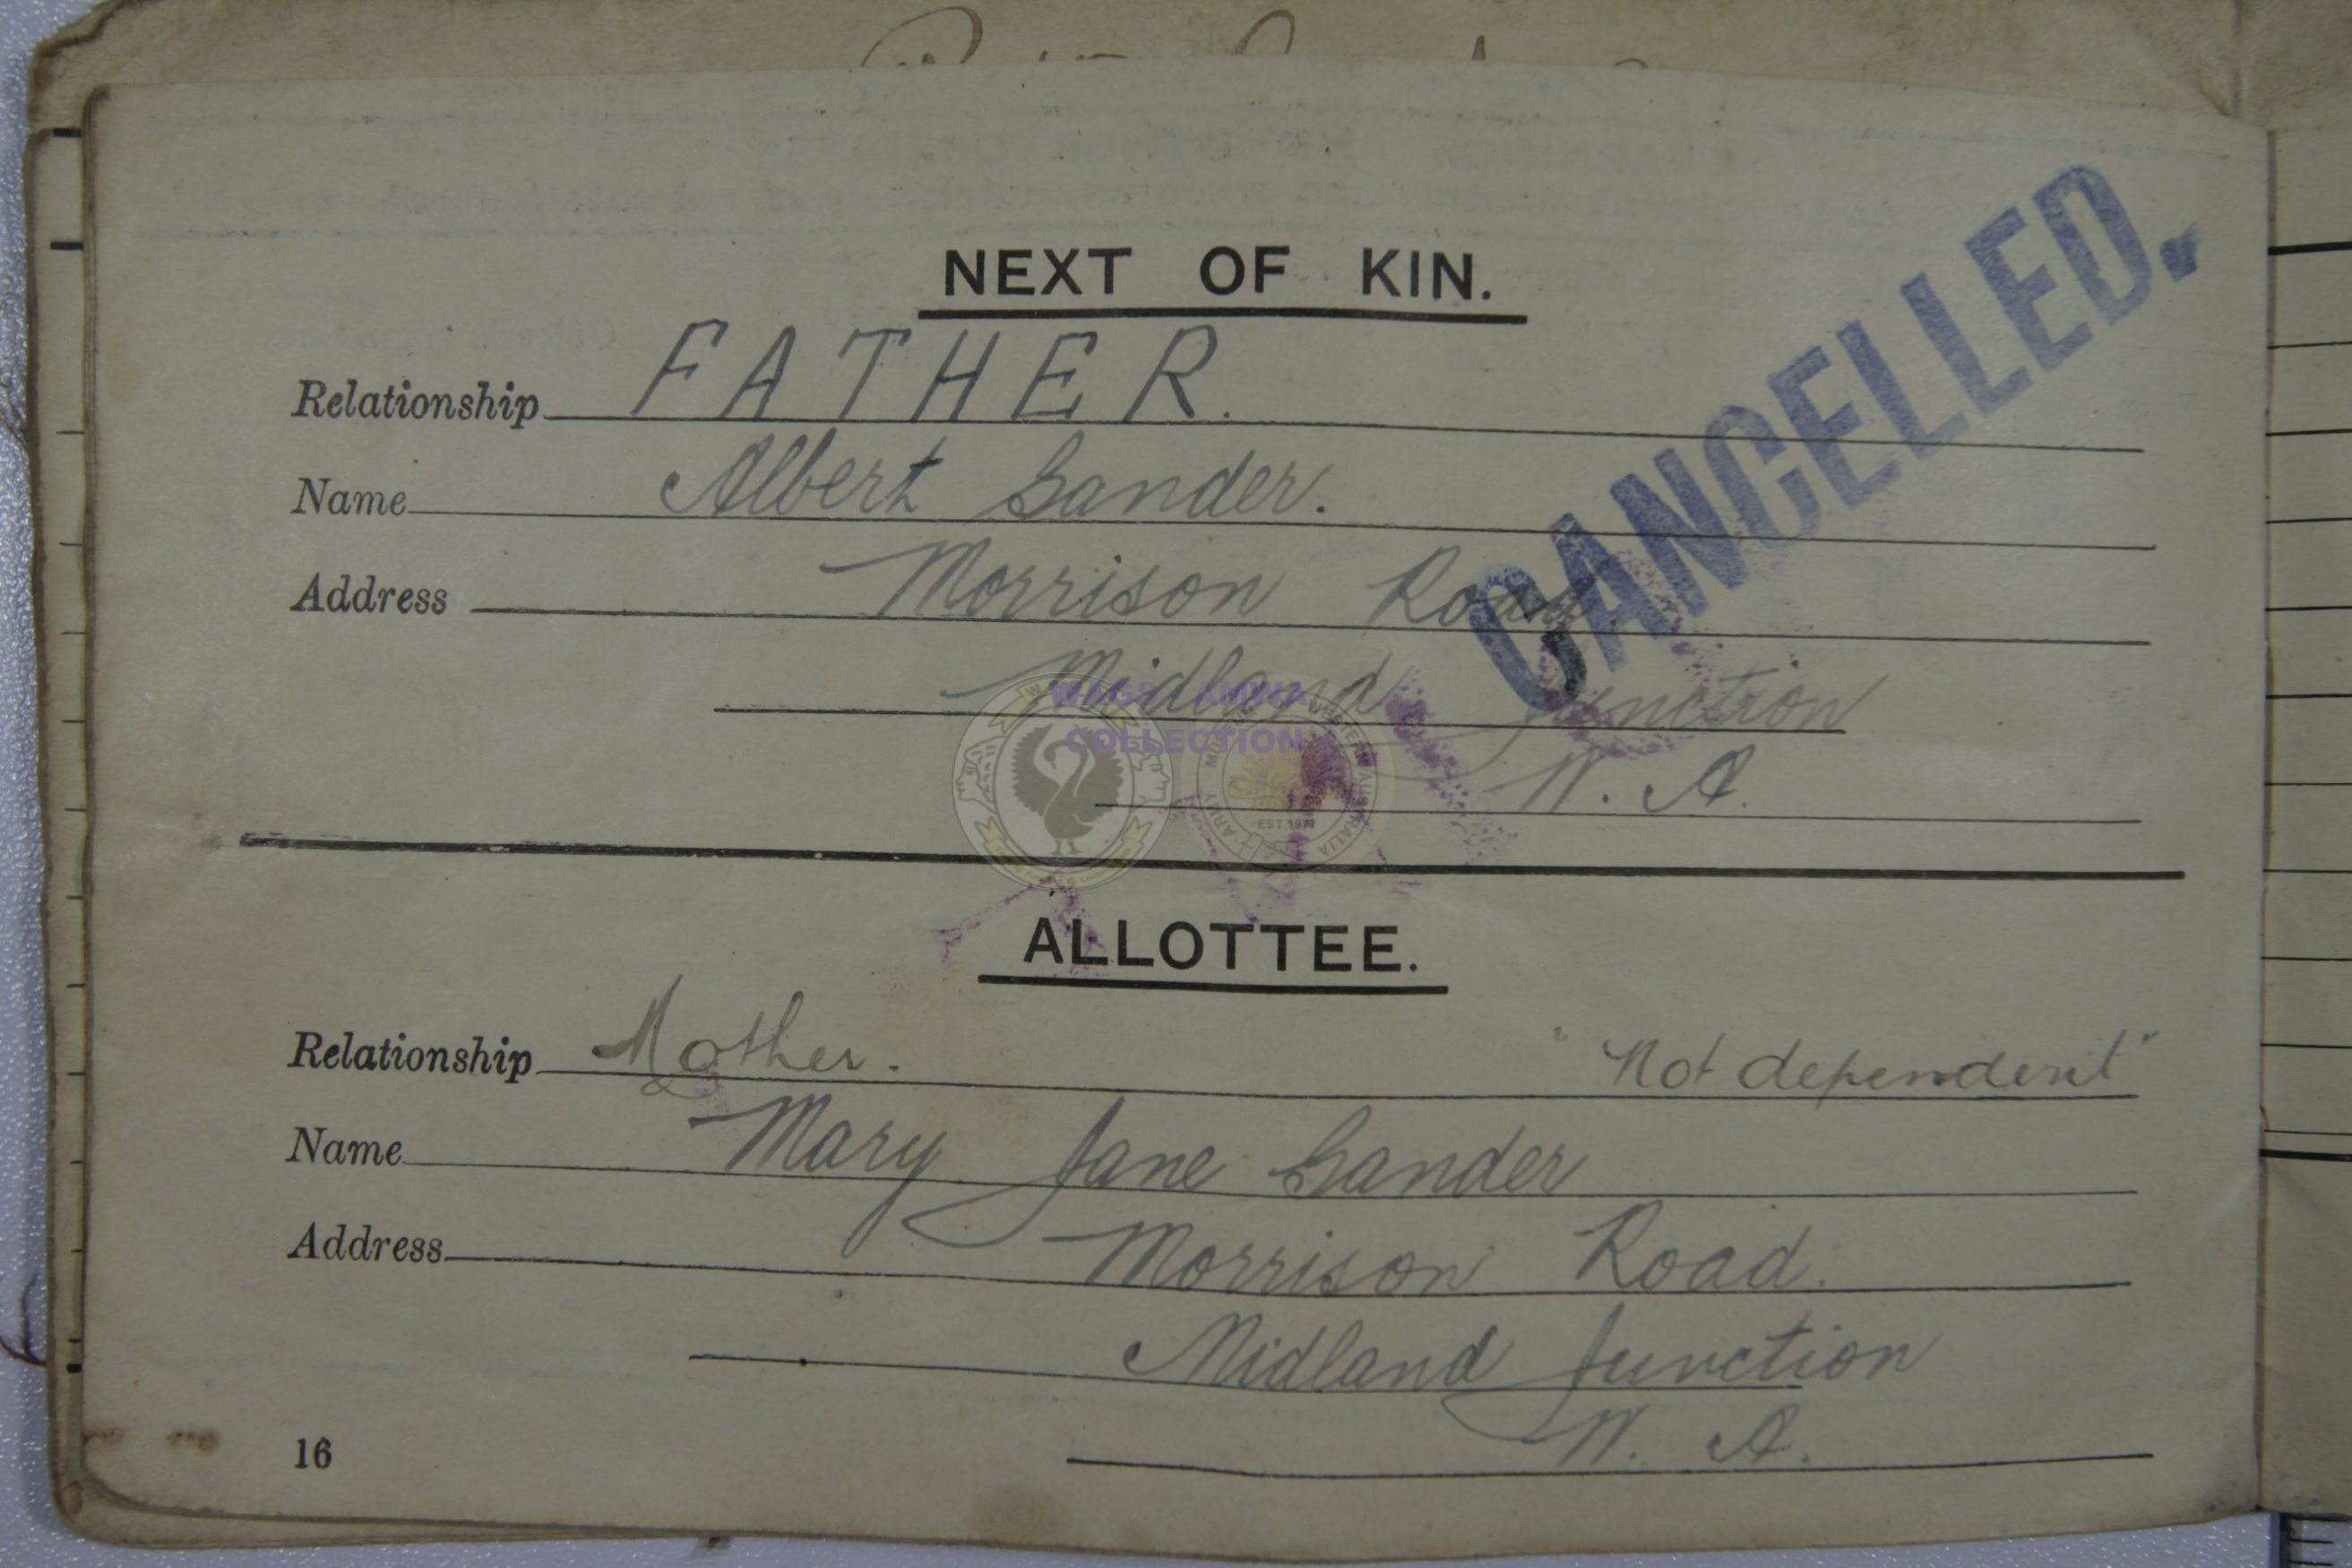 NEXT OF KIN.
CANCELLED.
Relationship FATHER.
Name Albert Gander.
Address Morrison Road
Midland Junction
W. A.
WAGS AMWA
COLLECTION
EST 1977
ALLOTTEE.
Relationship Mother. "Not dependent"
Name Mary Jane Gander
Address Morrison Road.
Midland Junction
W. A.
16